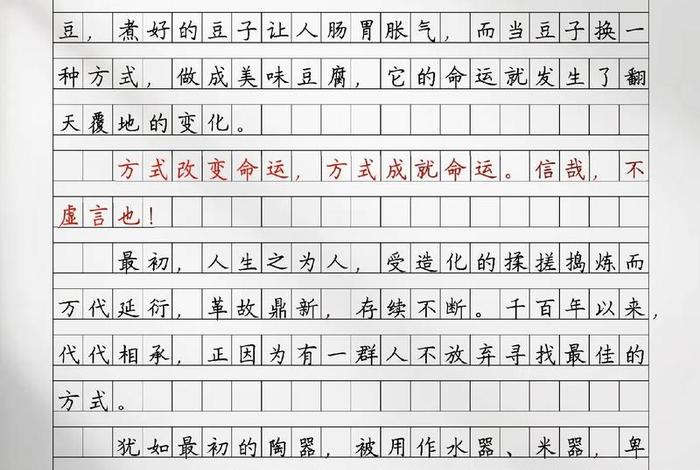 豆，煮好的豆子让人肠胃胀气，而当豆子换一
种方式，做成美味豆腐，它的命运就发生了翻
天覆地的变化。
方式改变命运，方式成就命运。信哉，不
虚言也！
最初，人生之为人，受造化的揉搓捣炼而
万代延衍，革故鼎新，存续不断。千百年以来，
代代相承，正因为有一群人不放弃寻找最佳的
方式。
犹如最初的陶器，被用作水器、米器，卑